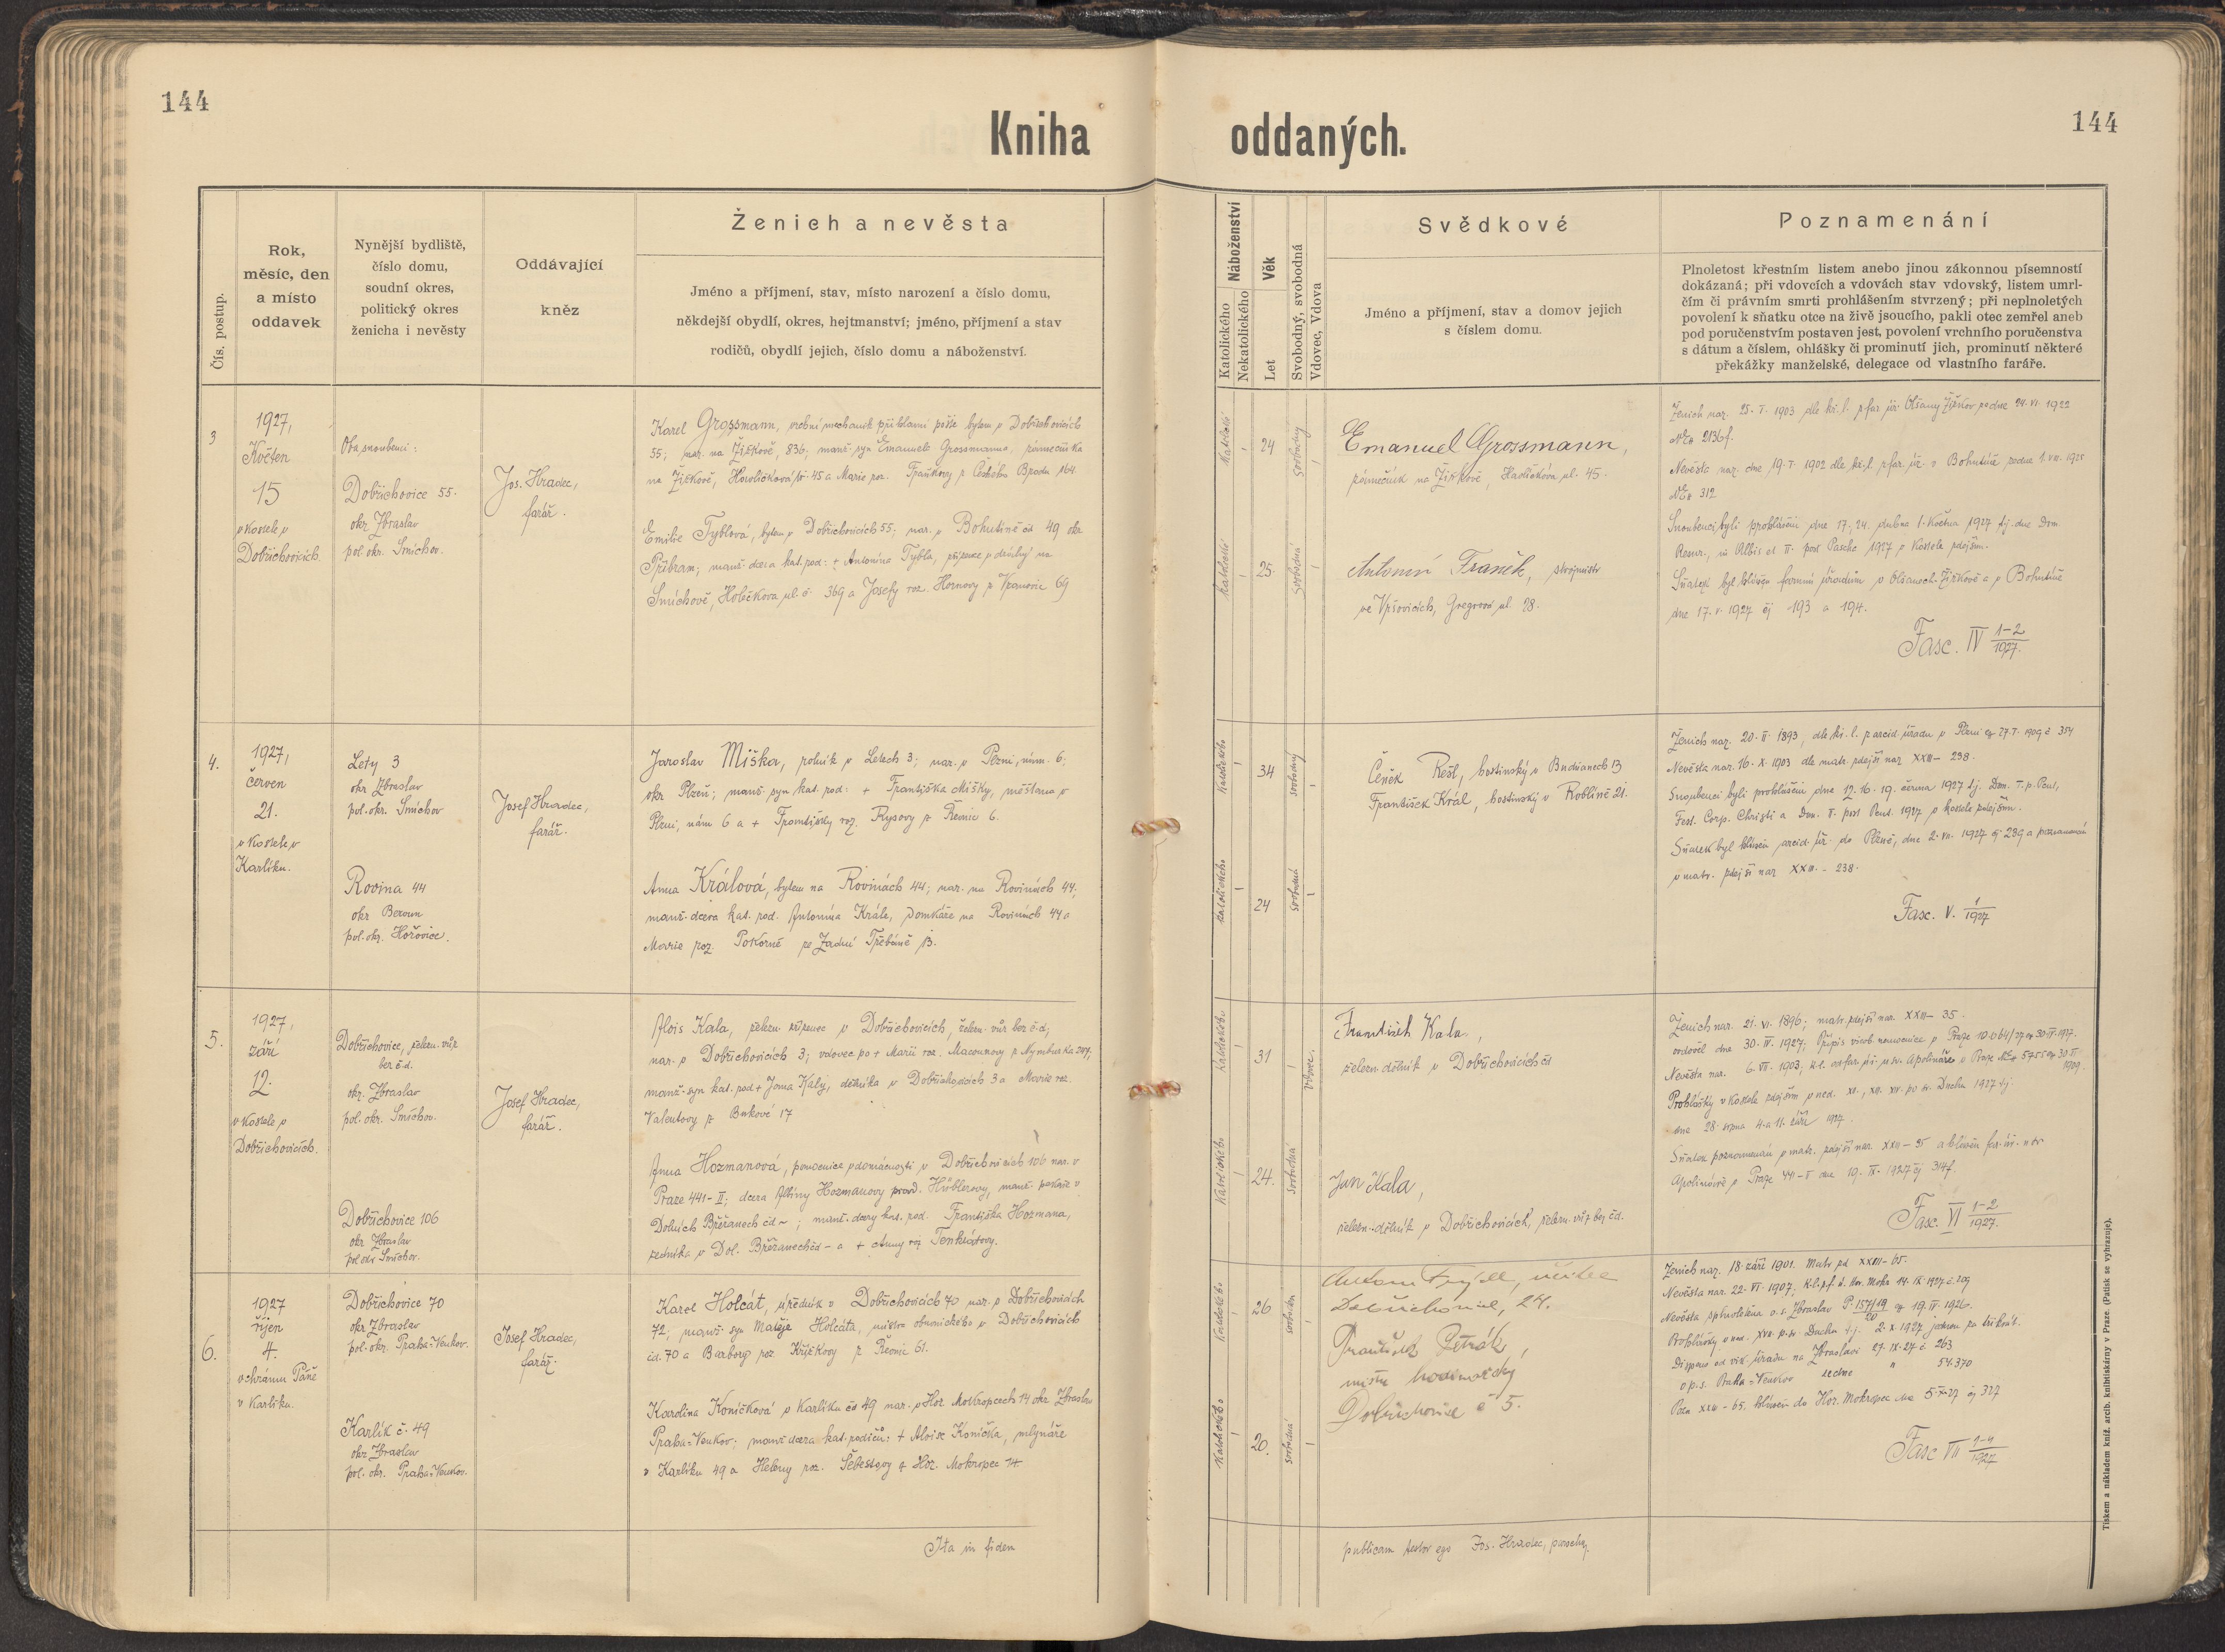 144
144
Kniha oddaných.
Čís. postup.
Rok,
měsíc, den
a místo
oddavek
Nynější bydliště,
číslo domu,
soudní okres,
politický okres
ženicha i nevěsty
Oddávající
kněz
Ženich a nevěsta
Jméno a příjmení, stav, místo narození a číslo domu,
někdejší obydlí, okres, hejtmanství; jméno, příjmení a stav
rodičů, obydlí jejich, číslo domu a náboženství.
Náboženství
Katolického
Nekatolického
Věk
Let
Svobodný, svobodná
Vdovec, Vdova
Svědkové
Jméno a příjmení, stav a domov jejich
s číslem domu.
Poznamenání
Plnoletost křestním listem anebo jinou zákonnou písemností
dokázaná; při vdovcích a vdovách stav vdovský, listem umrl-
čím či právním smrti prohlášením stvrzený; při neplnoletých
povolení k sňatku otce na živě jsoucího, pakli otec zemřel aneb
pod poručenstvím postaven jest, povolení vrchního poručenstva
s dátum a číslem, ohlášky či prominutí jich, prominutí některé
překážky manželské, delegace od vlastního faráře.
3
1927,
Květen
15
v kostele v
Dobřichovicích.
Oba snoubenci:
Dobřichovice 55.
okr. Zbraslav
pol. okr. Smíchov.
Jos. Hradec,
farář.
Karel Grossmann, bytem v Dobřichovicích
55; nar. na Žižkově, 836; manž. syn Emanuela Grossmanna,
na Žižkově, Havlíčkova 45 a Marie roz. Fraňkovy z Brodu 164.
Emilie Tyblová, bytem v Dobřichovicích 55; nar. v Bohutíně čd 49 okr.
Příbram; manž. dcera kat. rod: + Antonína Tybla,
Smíchově, Holečkova ul. č. 369 a Josefy roz. Hornovy z Vranovic 69
24
25.
svobodný
svobodná
Emanuel Grossmann,
na Žižkově, Havlíčkova ul. 45.
Antonín Franěk, strojmistr
ve Vršovicích, Gregrova ul. 28.
Ženich nar. 25. I. 1903 dle kř. l. far. úř. Olšany Žižkov ze dne 24. VI. 1922
2136 f.
Nevěsta nar. dne 19. I. 1902 dle kř. l. far. úř. v Bohutíně ze dne 1. VIII. 1925
312
Snoubenci byli prohlášeni dne 17., 24. dubna 1. května 1927 tj. dne Dom.
Resur., in Albis et II. post Pascha 1927 v kostele zdejším.
Sňatek byl hlášen farním úřadům v Olšanech-Žižkově a v Bohutíně
dne 17. V. 1927 čj 193 a 194.
Fasc. IV 1-2/1927.
4.
1927,
červen
21.
v kostele v
Karlíku.
Lety 3
okr Zbraslav
pol. okr. Smíchov
Rovina 44
okr Beroun
pol. okr. Hořovice.
Josef Hradec,
farář.
Jaroslav Miška, rolník v Letech 3; nar. v Plzni, nám. 6;
okr Plzeň; manž. syn kat. rod: + Františka Mišky, měšťana v
Plzni, nám 6 a + Františky roz. Rysovy z Řevnic 6.
Anna Králová, bytem na Rovinách 44; nar. na Rovinách 44;
manž. dcera kat. rod. Antonína Krále, domkáře na Rovinách 44 a
Marie roz. Pokorné ze Zadní Třebáně 13.
Katolického
34
24
svobodný
svobodná
Čeněk Rešl, hostinský v Budňanech 13
František Král, hostinský v Roblíně 21.
Ženich nar. 20. II. 1893, dle kř. l. arcid. úřadu v Plzni 27. I. 1909 č 354
Nevěsta nar. 16. X. 1903 dle matr. zdejší nar XXIII- 238.
Snoubenci byli prohlášeni dne 12. 16. 19. června 1927 tj. Dom. I. p. Pent,
Fest. Corp. Christi a Dom. II. post Pent. 1927 v kostele zdejším.
Sňatek byl hlášen arcid. úř. do Plzně, dne 2. VII. 1927 čj 239 a poznamenán
v matr. zdejší nar XXIII. - 238.
Fasc. V. 1/1927
5.
1927,
září
12.
v kostele v
Dobřichovicích.
Dobřichovice, železn. vůz
bez č.d.
okr. Zbraslav
pol. okr. Smíchov.
Dobřichovice 106
okr Zbraslav
pol okr Smíchov.
Josef Hradec,
farář.
Alois Kala, železn. zřízenec v Dobřichovicích, železn. vůz bez č.d;
nar. v Dobřichovicích 3; vdovec po + Marii roz. Macounovy z Nymburka 207;
manž. syn kat. rod + Jana Kaly, dělníka v Dobřichovicích 3 a Marie roz.
Valentovy z Bukové 17
Anna Hozmanová, pomocnice v domácnosti v Dobřichovicích 106 nar. v
Praze 441-II; dcera Albiny Hozmanovy provd. Hüblerovy, manž. pekaře v
Dolních Břežanech čd ~; manž. dcery kat. rod. Františka Hozmana,
zedníka v Dol. Břežanech čd - a + Anny roz
31
24.
Vdovec
svobodná
František Kala,
železn. dělník v Dobřichovicích čd
Jan Kala,
železn. dělník v Dobřichovicích, železn. vůz bez čd.
Ženich nar. 21. VI. 1896; matr. zdejší nar. XXII- 35.
ovdověl dne 30. IV. 1927;
Nevěsta nar. 6. VII. 1903,
Prohlášky v kostele zdejším v ned. XI., XII. XIV. po sv. Duchu 1927 tj.
dne 28. srpna 4. a 11. září 1927.
Sňatek poznamenán v matr. zdejší nar. XXII - 35 a hlášen far. úř. u sv
Apolináře v Praze 441-II dne 19. IX. 1927 čj 314 f.
Fasc. VI 1-2/1927.
6.
1927
říjen
4.
v chrámu Páně
v Karlíku.
Dobřichovice 70
okr Zbraslav
pol. okr. Praha-Venkov.
Karlík č. 49
okr Zbraslav
pol. okr. Praha-Venkov.
Josef Hradec,
farář.
Karel Holcát, úředník v Dobřichovicích 70 nar. v Dobřichovicích
72; manž. syn Matěje Holcáta, mistra obuvnického v Dobřichovicích
čd. 70 a Barbory roz Křížkovy z Řevnic 61.
Karolina Koníčková v Karlíku čd 49 nar. v Hor Mokropcech 14 okr. Zbraslav
Praha-Venkov; manž dcera kat. rodičů: + Aloise Koníčka, mlynáře
v Karlíku 49 a Heleny roz. Šebestovy z Hor. Mokropec 14.
26
20.
svobodná
Dobřichovice, 24.
František Petrák,
mistr hodinářský
Dobřichovice č 5.
Ženich nar. 18. září 1901. Matr zd XXIII- 65.
Nevěsta nar. 22. VI. 1907,
Nevěsta zplnoletěna o. s. Zbraslav P. 157/19 19. IV. 1926.
Prohlášky v ned. XVII. p. sv. Duchu tj. 2. X. 1927 jednou za třikrát.
Dispens od vik. úřadu na Zbraslavi 27. IX. 27 č. 263
o p. s. Praha-Venkov " 54.370
Pozn XXIII - 65. hlášen do Hor. Mokropec dne 5. X. 27 čj 327
Fasc VII 1-4/1927
Ita in fidem
publicam testor ego Jos. Hradec, parochus.
Tiskem a nákladem kníž. arcib. knihtiskárny v Praze. (Patisk se vyhrazuje).